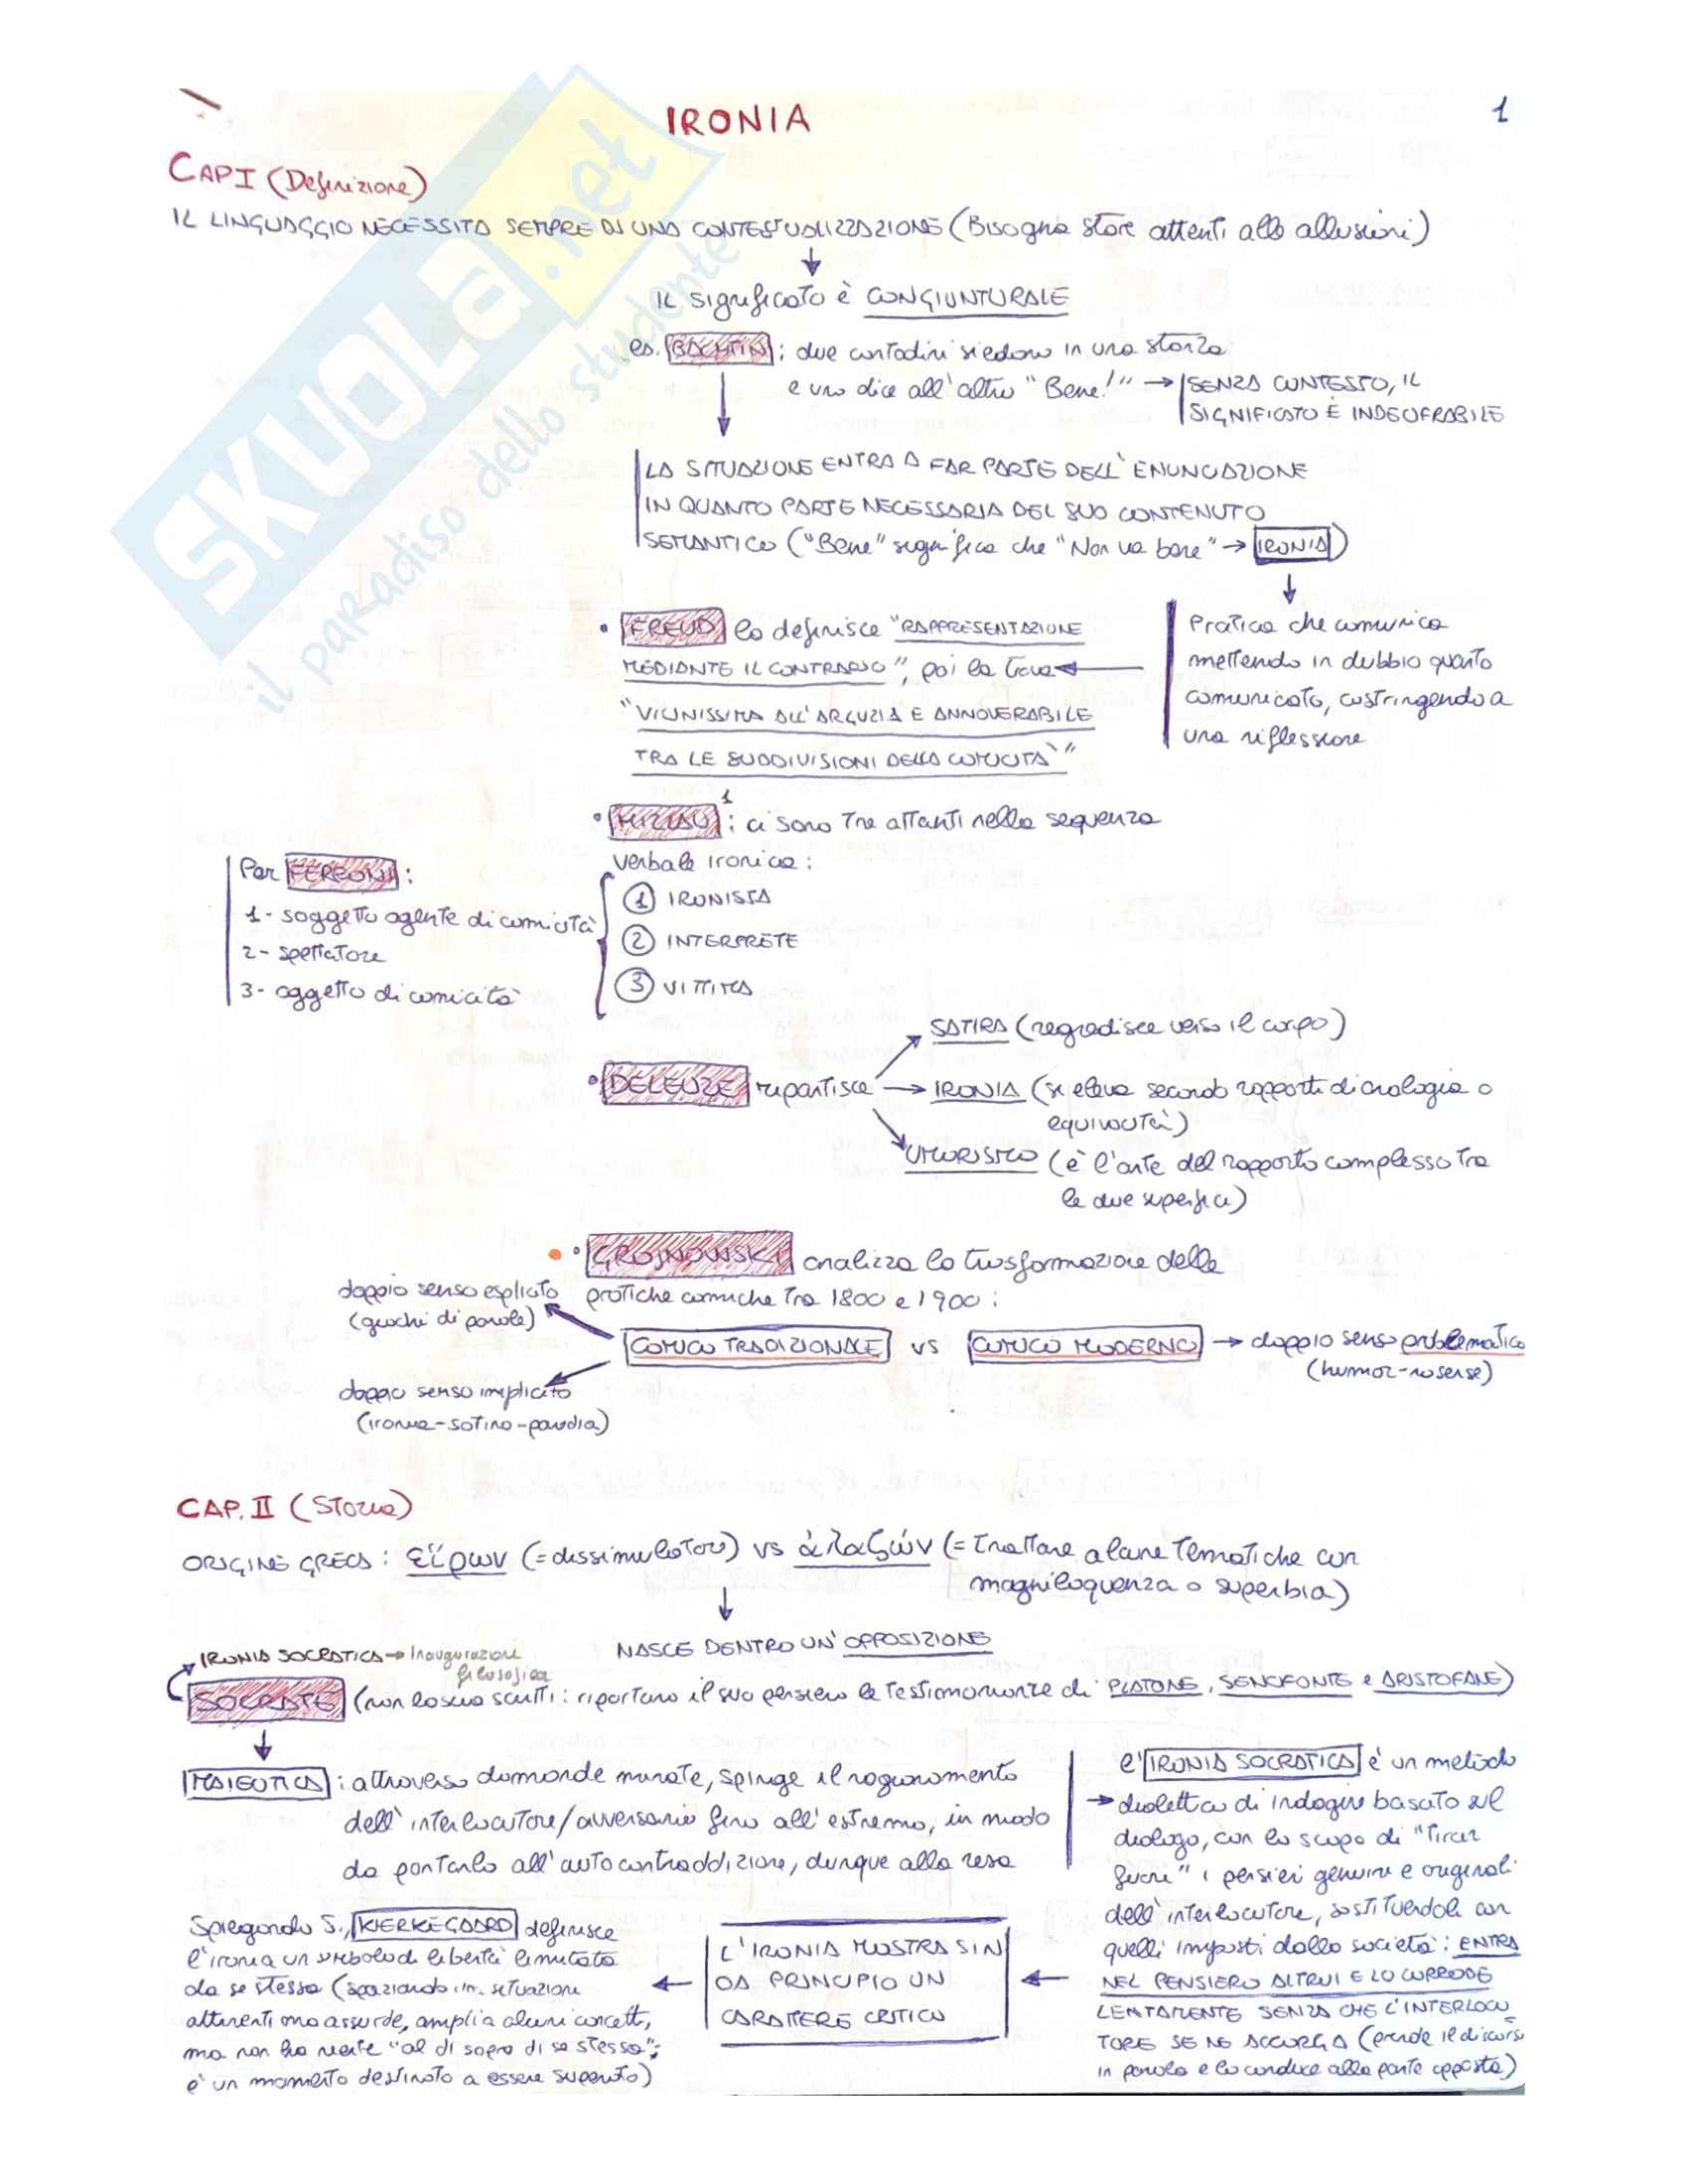 IRONIA
1
CAP I (Definizione)
IL LINGUAGGIO NECESSITA SEMPRE DI UNA CONTESTUALIZZAZIONE (Bisogna stare attenti alle allusioni)
IL significato è CONGIUNTURALE
es. BACHTIN: due contadini siedono in una stanza
e uno dice all'altro "Bene!" → SENZA CONTESTO, IL
SIGNIFICATO È INDECIFRABILE
LA SITUAZIONE ENTRA A FAR PARTE DELL'ENUNCIAZIONE
IN QUANTO PARTE NECESSARIA DEL SUO CONTENUTO
SEMANTICO ("Bene" significa che "Non va bene" → IRONIA)
Pratica che comunica
mettendo in dubbio quanto
comunicato, costringendo a
una riflessione
• FREUD la definisce "RAPPRESENTAZIONE
MEDIANTE IL CONTRARIO", poi la trova
"VICINISSIMA ALL'ARGUZIA E ANNOVERABILE
TRA LE SUDDIVISIONI DELLA COMICITÀ"
• MIZZAU 1: ci sono tre attanti nella sequenza
verbale ironica:
① IRONISTA
② INTERPRETE
③ VITTIMA
Per FERRONI:
1- soggetto agente di comicità
2- spettatore
3- oggetto di comicità
• DELEUZE ripartisce
SATIRA (regredisce verso il corpo)
→ IRONIA (si eleva secondo rapporti di analogia o
equivocità)
UMORISMO (è l'arte del rapporto complesso tra
le due superfici)
• GROJNOWSKI analizza la trasformazione delle
pratiche comiche tra 1800 e 1900:
doppio senso esplicito
(giochi di parole)
COMICO TRADIZIONALE vs COMICO MODERNO → doppio senso problematico
(humor-nosense)
doppio senso implicito
(ironia-satira-parodia)
CAP. II (Storia)
ORIGINE GRECA: εἴρων (=dissimulatore) vs ἀλαζών (= Trattare alcune tematiche con
magniloquenza o superbia)
NASCE DENTRO UN'OPPOSIZIONE
IRONIA SOCRATICA → Inaugurazione
filosofica
SOCRATE (non lascia scritti: riportano il suo pensiero le testimonianze di PLATONE, SENOFONTE e ARISTOFANE)
MAIEUTICA: attraverso domande mirate, spinge il ragionamento
dell'interlocutore/avversario fino all'estremo, in modo
da portarlo all'autocontraddizione, dunque alla resa
l'IRONIA SOCRATICA è un metodo
→ dialettico di indagine basato sul
dialogo, con lo scopo di "tirar
fuori" i pensieri genuini e originali
dell'interlocutore, sostituendoli con
quelli imposti dalla società: ENTRA
NEL PENSIERO ALTRUI E LO CORRODE
LENTAMENTE SENZA CHE L'INTERLOCU
TORE SE NE ACCORGA (prende il discorso
in parola e lo conduce alla parte opposta)
L'IRONIA MOSTRA SIN
DA PRINCIPIO UN
CARATTERE CRITICO
Spiegando S., KIERKEGAARD definisce
l'ironia un simbolo di libertà limitata
da se stessa (spaziando in situazioni
attinenti ma assurde, amplia alcuni concetti,
ma non ha niente "al di sopra di se stessa";
è un momento destinato a essere superato)
SKUOLA.net
il paradiso dello studente